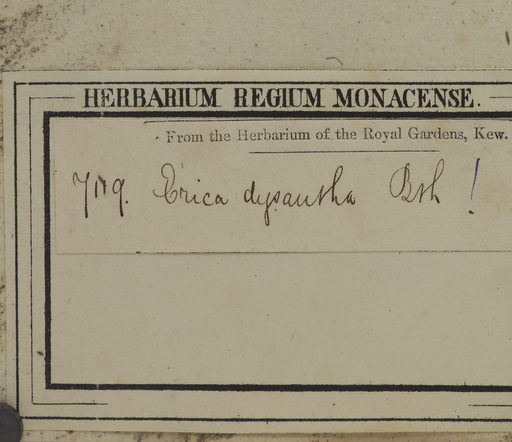 HERBARIUM REGIUM MONACENSE.
From the Herbarium of the Royal Gardens, Kew.
7119. Erica dysantha Bth !